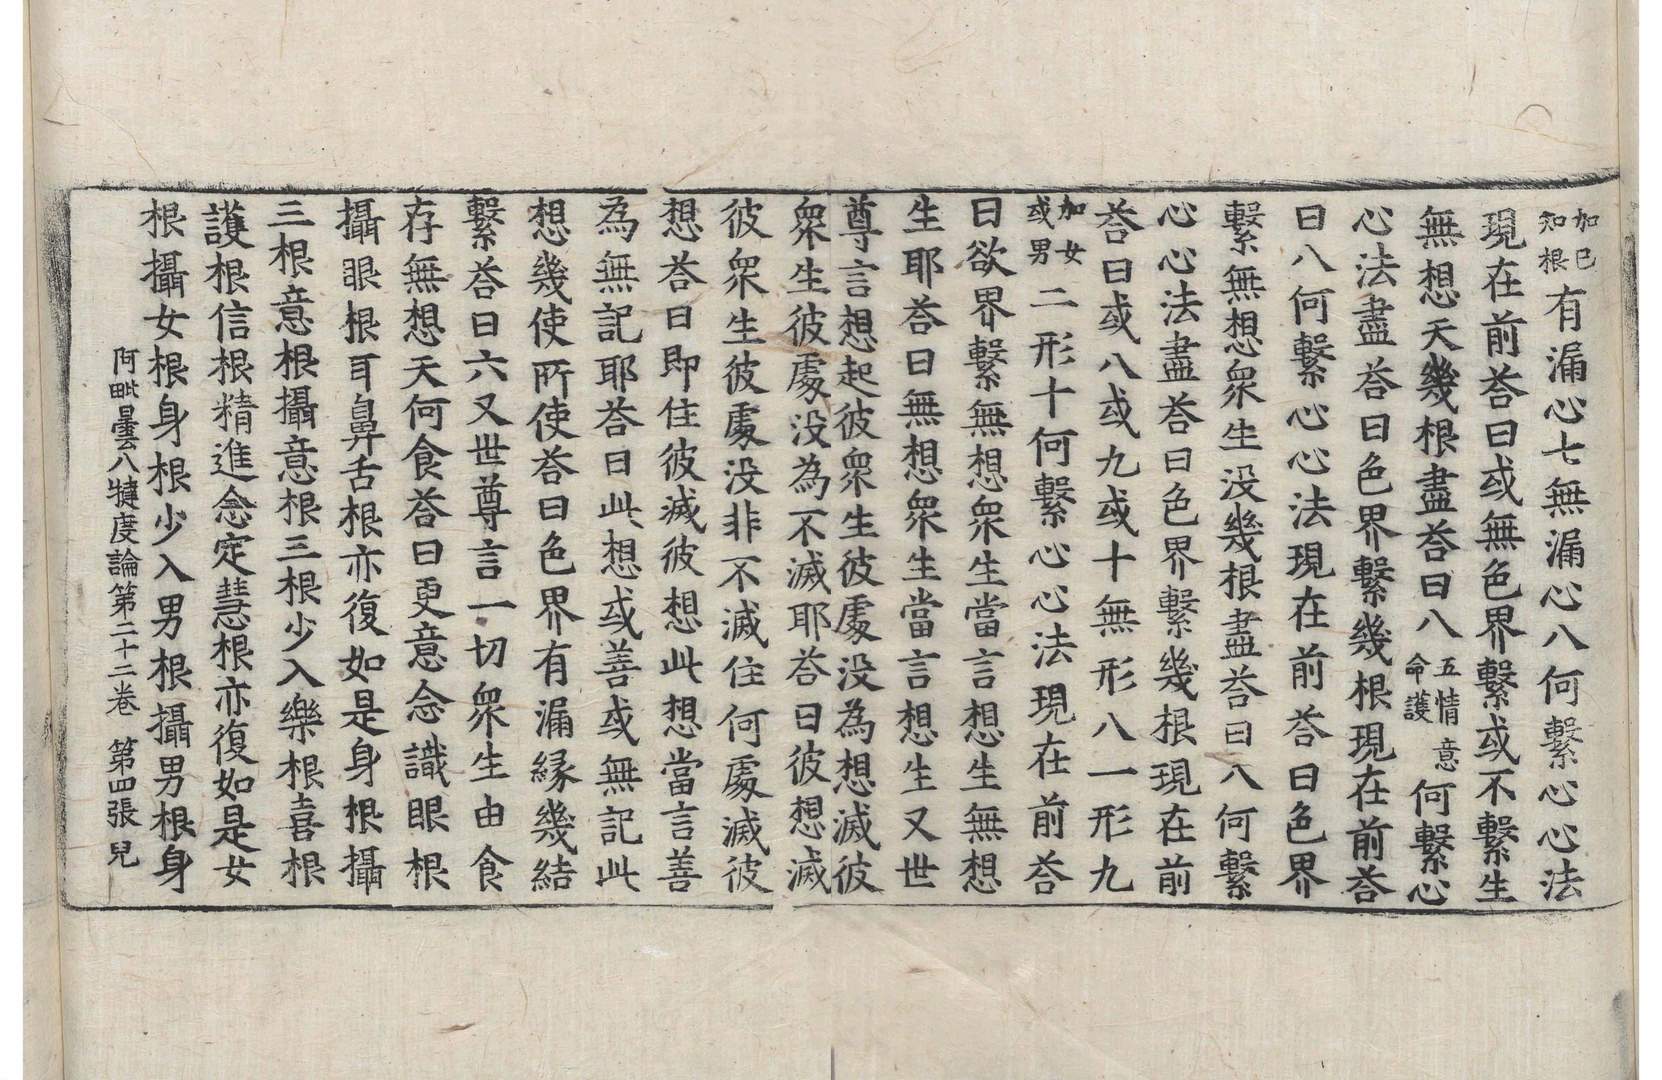 加已知根有漏心七無漏心八何繫心心法
現在前荅曰或無色界繫或不繫生
無想天幾根盡荅曰八五情意命護何繫心
心法盡荅曰色界繫幾根現在前荅
曰八何繫心心法現在前荅曰色界
繫無想衆生没幾根盡荅曰八何繫
心心法盡荅曰色界繫幾根現在前
荅曰或八或九或十無形八一形九
加女或男二形十何繫心心法現在前荅
曰欲界繫無想衆生當言想生無想
生耶荅曰無想衆生當言想生又世
尊言想起彼衆生彼處没為想滅彼
衆生彼處没為不滅耶荅曰彼想滅
彼衆生彼處没非不滅住何處滅彼
想荅曰即住彼滅彼想此想當言善
為無記耶荅曰此想或善或無記此
想幾使所使荅曰色界有漏縁幾結
繫荅曰六又世尊言一切衆生由食
存無想天何食荅曰更意念識眼根
攝眼根耳鼻舌根亦復如是身根攝
三根意根攝意根三根少入樂根喜根
護根信根精進念定慧根亦復如是女
根攝女根身根少入男根攝男根身
阿毗曇八犍度論第二十二卷　第四張　兒